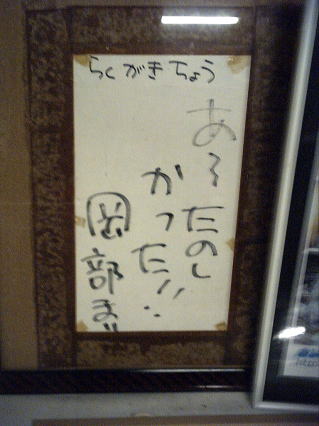 らくがきちょう
あ〜たのし
かった!!
岡部まり